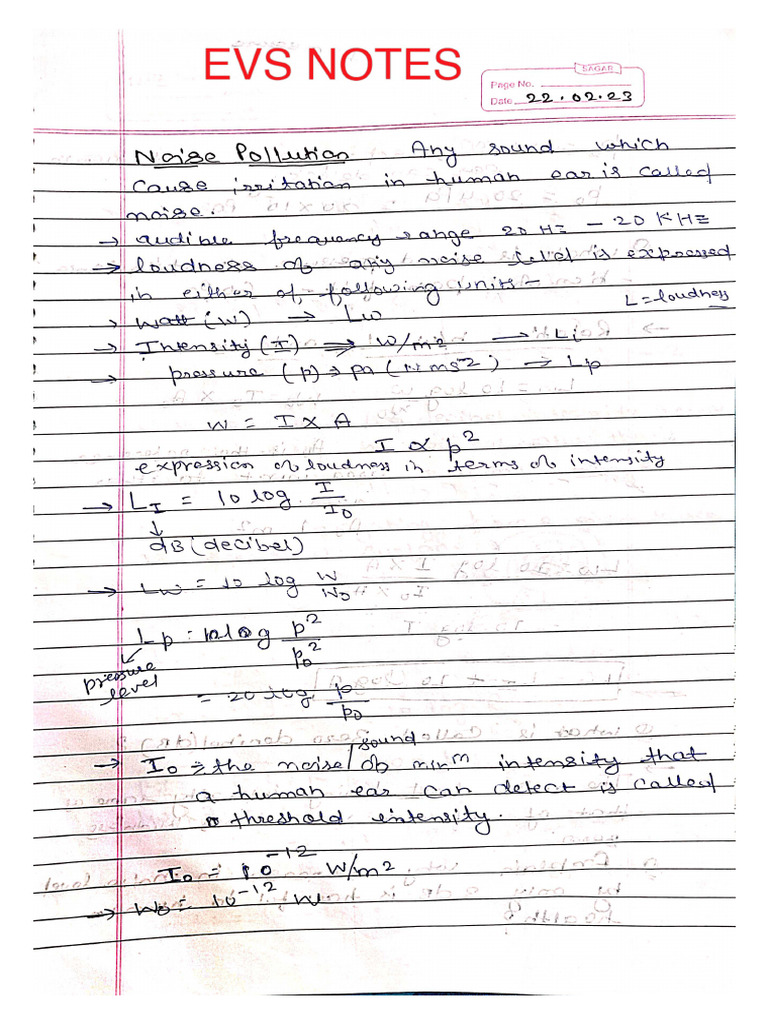 EVS NOTES
SAGAR
Page No.
Date 22.02.23
Noise Pollution Any sound which
cause irritation in human ear is called
noise.
→ audible frequency range 20 Hz - 20 KHz
→ loudness of any noise level is expressed
in either of following units -
L = loudness
→ Watt (W) → Lw
→ Intensity (I) ⇒ W/m² → Li
→ pressure (p) → pa (Nms²) → Lp
W = I X A
I ∝ p²
expression of loudness in terms of intensity
→ L_I = 10 log I/I₀
↓
dB (decibel)
→ Lw = 10 log W/W₀
Lp = 10 log p²/p₀²
pressure level
= 20 log p/p₀
→ I₀ ⇒ the noise/sound of minᵐ intensity that
a human ear can detect is called
threshold intensity.
I₀ = 10⁻¹² W/m²
→ W₀ = 10⁻¹² W